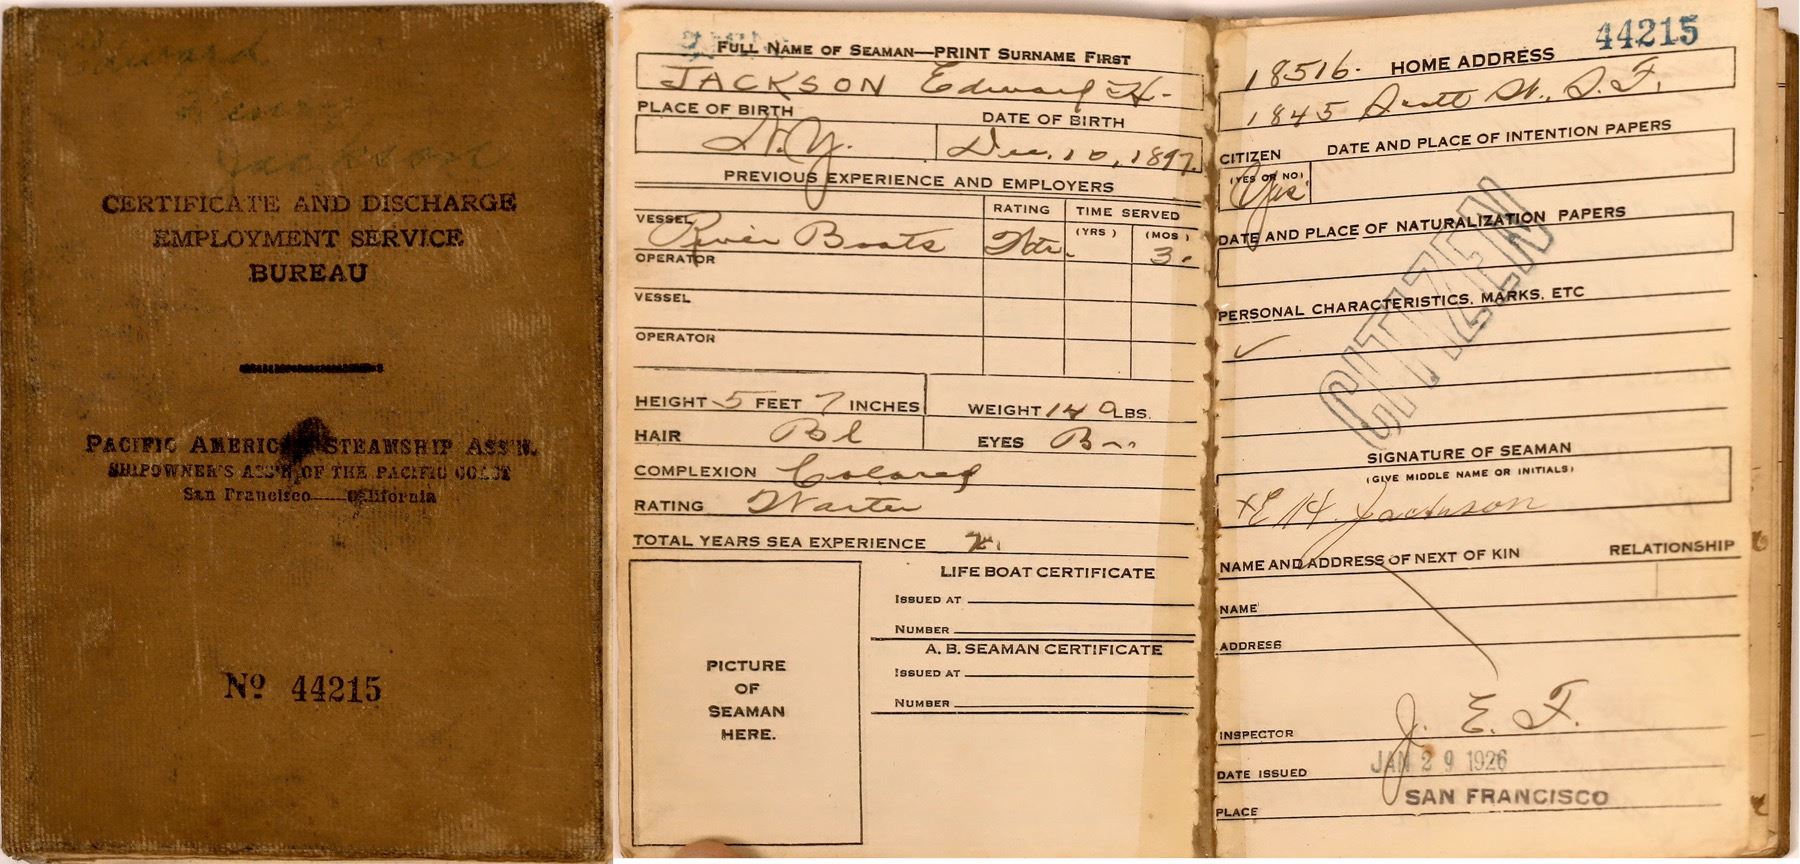 Edward
Henry
Jackson
CERTIFICATE AND DISCHARGE
EMPLOYMENT SERVICE
BUREAU
PACIFIC AMERICAN STEAMSHIP ASS'N.
SHIPOWNER'S ASS'N OF THE PACIFIC COAST
San Francisco—California
Nº 44215
FULL NAME OF SEAMAN—PRINT SURNAME FIRST
JACKSON Edward H.
PLACE OF BIRTH DATE OF BIRTH
N.Y. Dec. 10, 1897.
PREVIOUS EXPERIENCE AND EMPLOYERS
RATING TIME SERVED
VESSEL (YRS) (MOS)
River Boats Wtr. 3.
OPERATOR
VESSEL
OPERATOR
HEIGHT 5 FEET 7 INCHES WEIGHT 149 LBS.
HAIR Bl EYES Br
COMPLEXION Colored
RATING Waiter
TOTAL YEARS SEA EXPERIENCE
LIFE BOAT CERTIFICATE
ISSUED AT
NUMBER
A. B. SEAMAN CERTIFICATE
ISSUED AT
NUMBER
PICTURE
OF
SEAMAN
HERE.
44215
18516. HOME ADDRESS
1845 Scott St., S.F.
CITIZEN DATE AND PLACE OF INTENTION PAPERS
(YES OR NO)
Yes
DATE AND PLACE OF NATURALIZATION PAPERS
CITIZEN
PERSONAL CHARACTERISTICS, MARKS, ETC
✓
SIGNATURE OF SEAMAN
(GIVE MIDDLE NAME OR INITIALS)
x E H. Jackson
NAME AND ADDRESS OF NEXT OF KIN RELATIONSHIP
NAME
ADDRESS
INSPECTOR J. E. F.
DATE ISSUED JAN 29 1926
PLACE SAN FRANCISCO